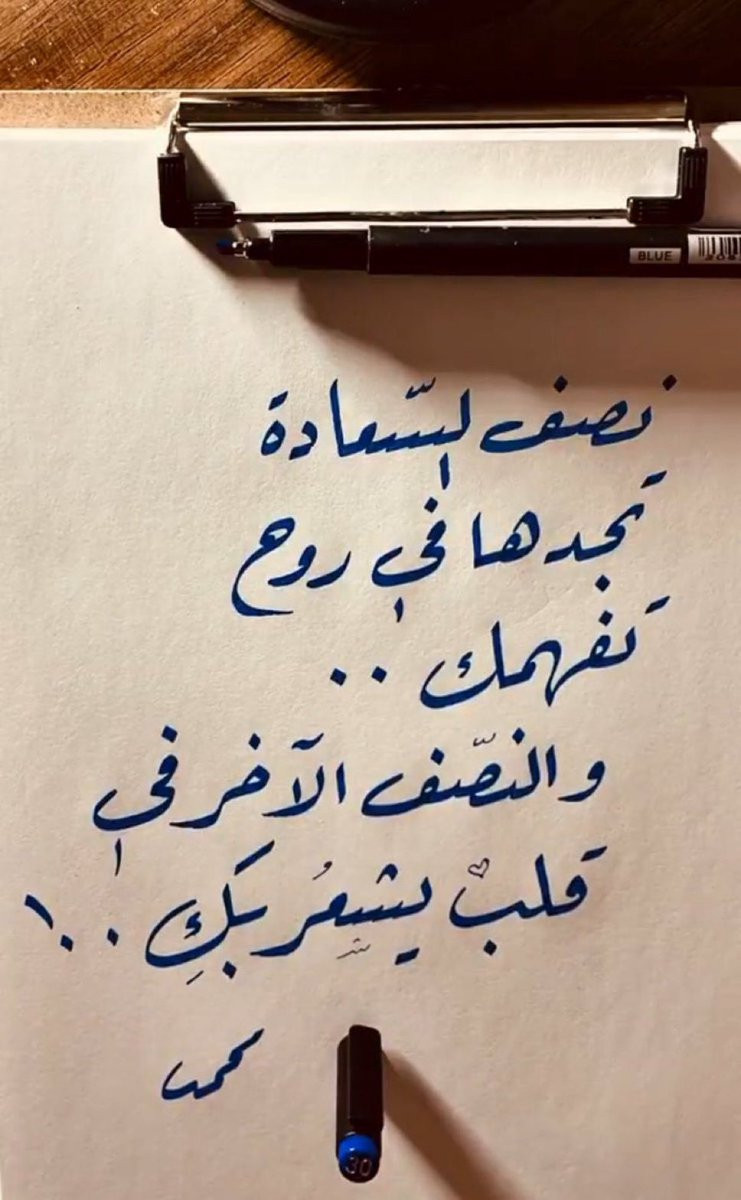 BLUE
نصف السّعادة
تجدها في روح
تفهمك ..
والنّصف الآخر في
قلبٌ يشعِرُ بكِ ..!
محمد
30